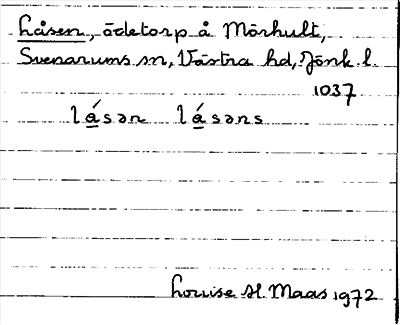 Låsen, ödetorp å Mörhult,
Svenarums sn, Västra hd, Jönk. l.
1037
lá̱sən lá̱səns
Louise H. Maas 1972